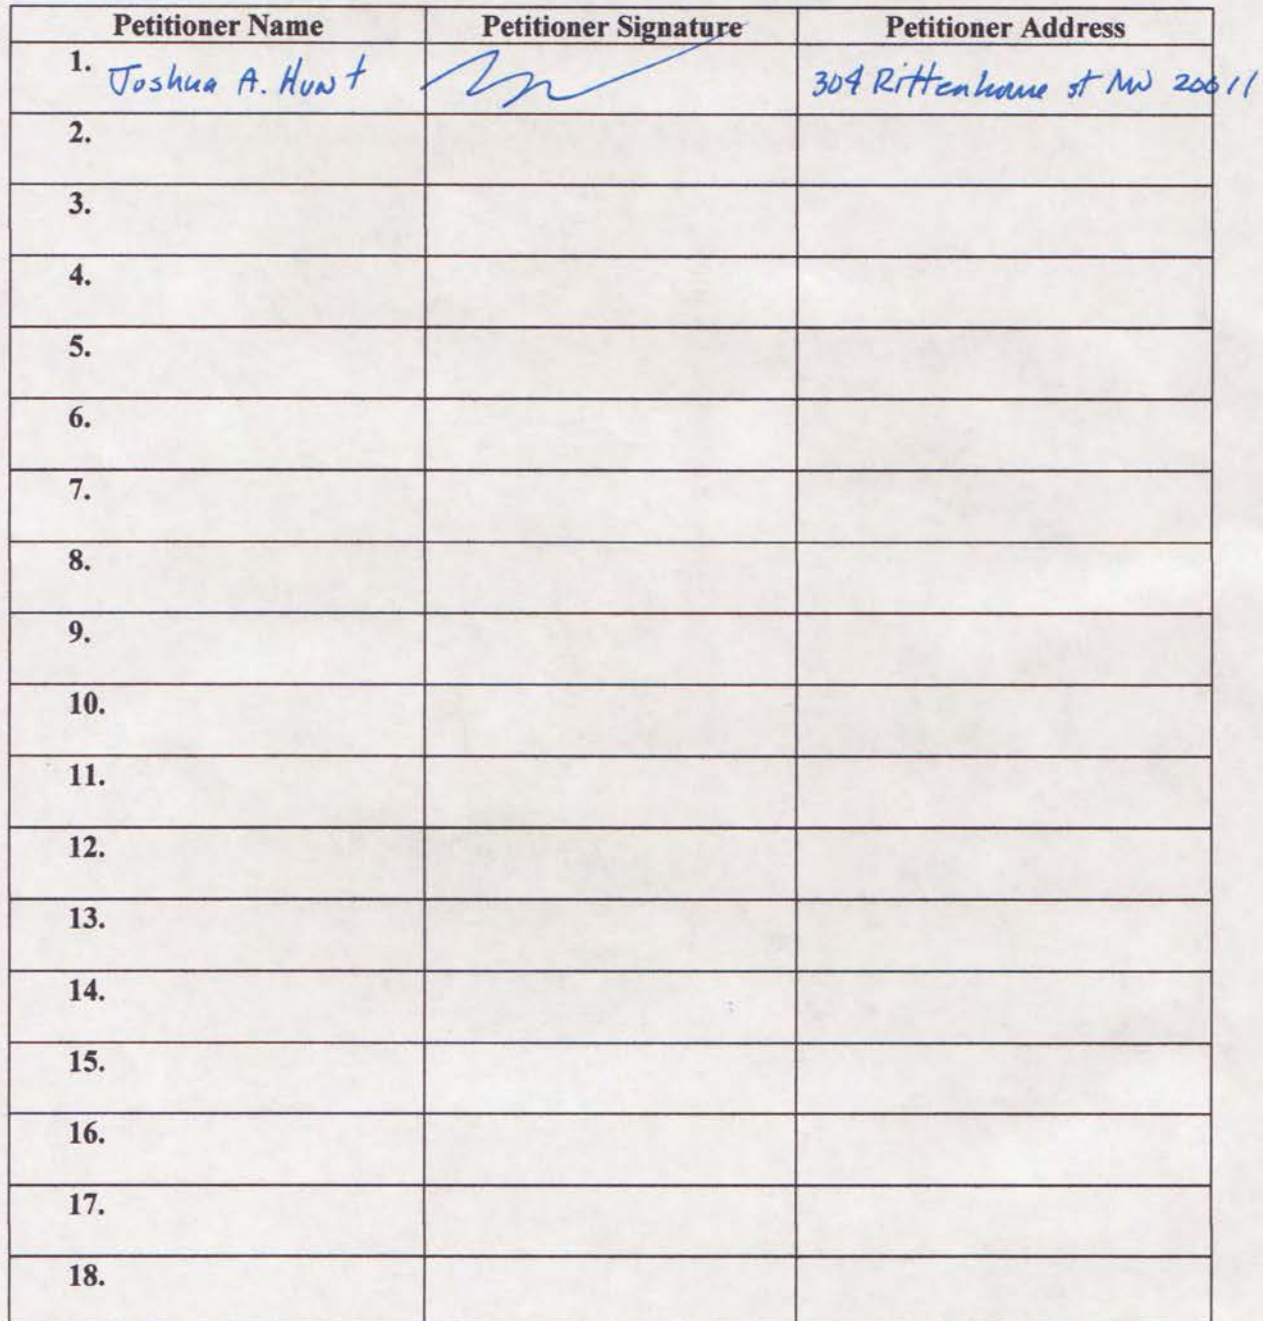 Petitioner Name Petitioner Signature Petitioner Address
1. Joshua A. Hunt 304 Rittenhouse st NW 20011
2.
3.
4.
5.
6.
7.
8.
9.
10.
11.
12.
13.
14.
15.
16.
17.
18.